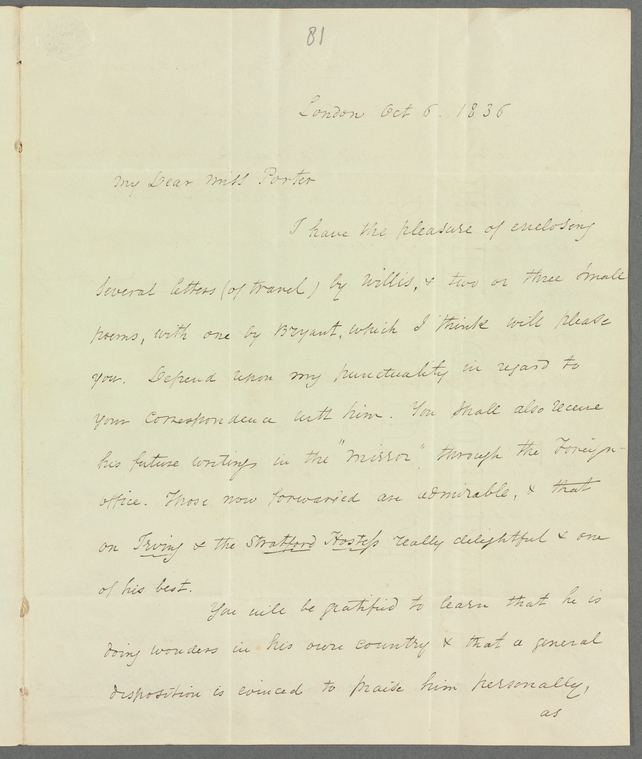 81
London Oct 6. 1836
My Dear Miss Porter
I have the pleasure of enclosing
several letters (of travel) by Willis, & two or three small
poems, with one by Bryant, which I think will please
you. Depend upon my punctuality in regard to
your correspondence with him. You shall also receive
his future writings in the "Mirror", through the Foreign-
office. Those now forwarded are admirable, & that
on Irving & the Stratford Hostess really delightful & one
of his best.
You will be gratified to learn that he is
doing wonders in his own country & that a general
disposition is evinced to praise him personally,
as